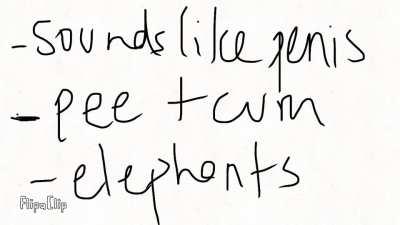 - sounds like penis
- pee + cum
- elephants
FlipaClip